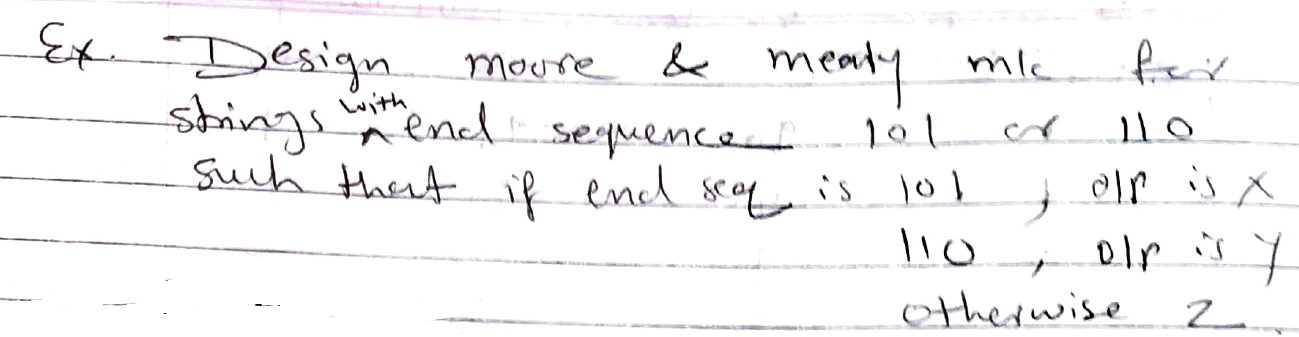 Ex. Design moore & mealy m/c for
strings with end sequence 101 or 110
such that if end seq is 101, o/p is x
110, o/p is y
otherwise z